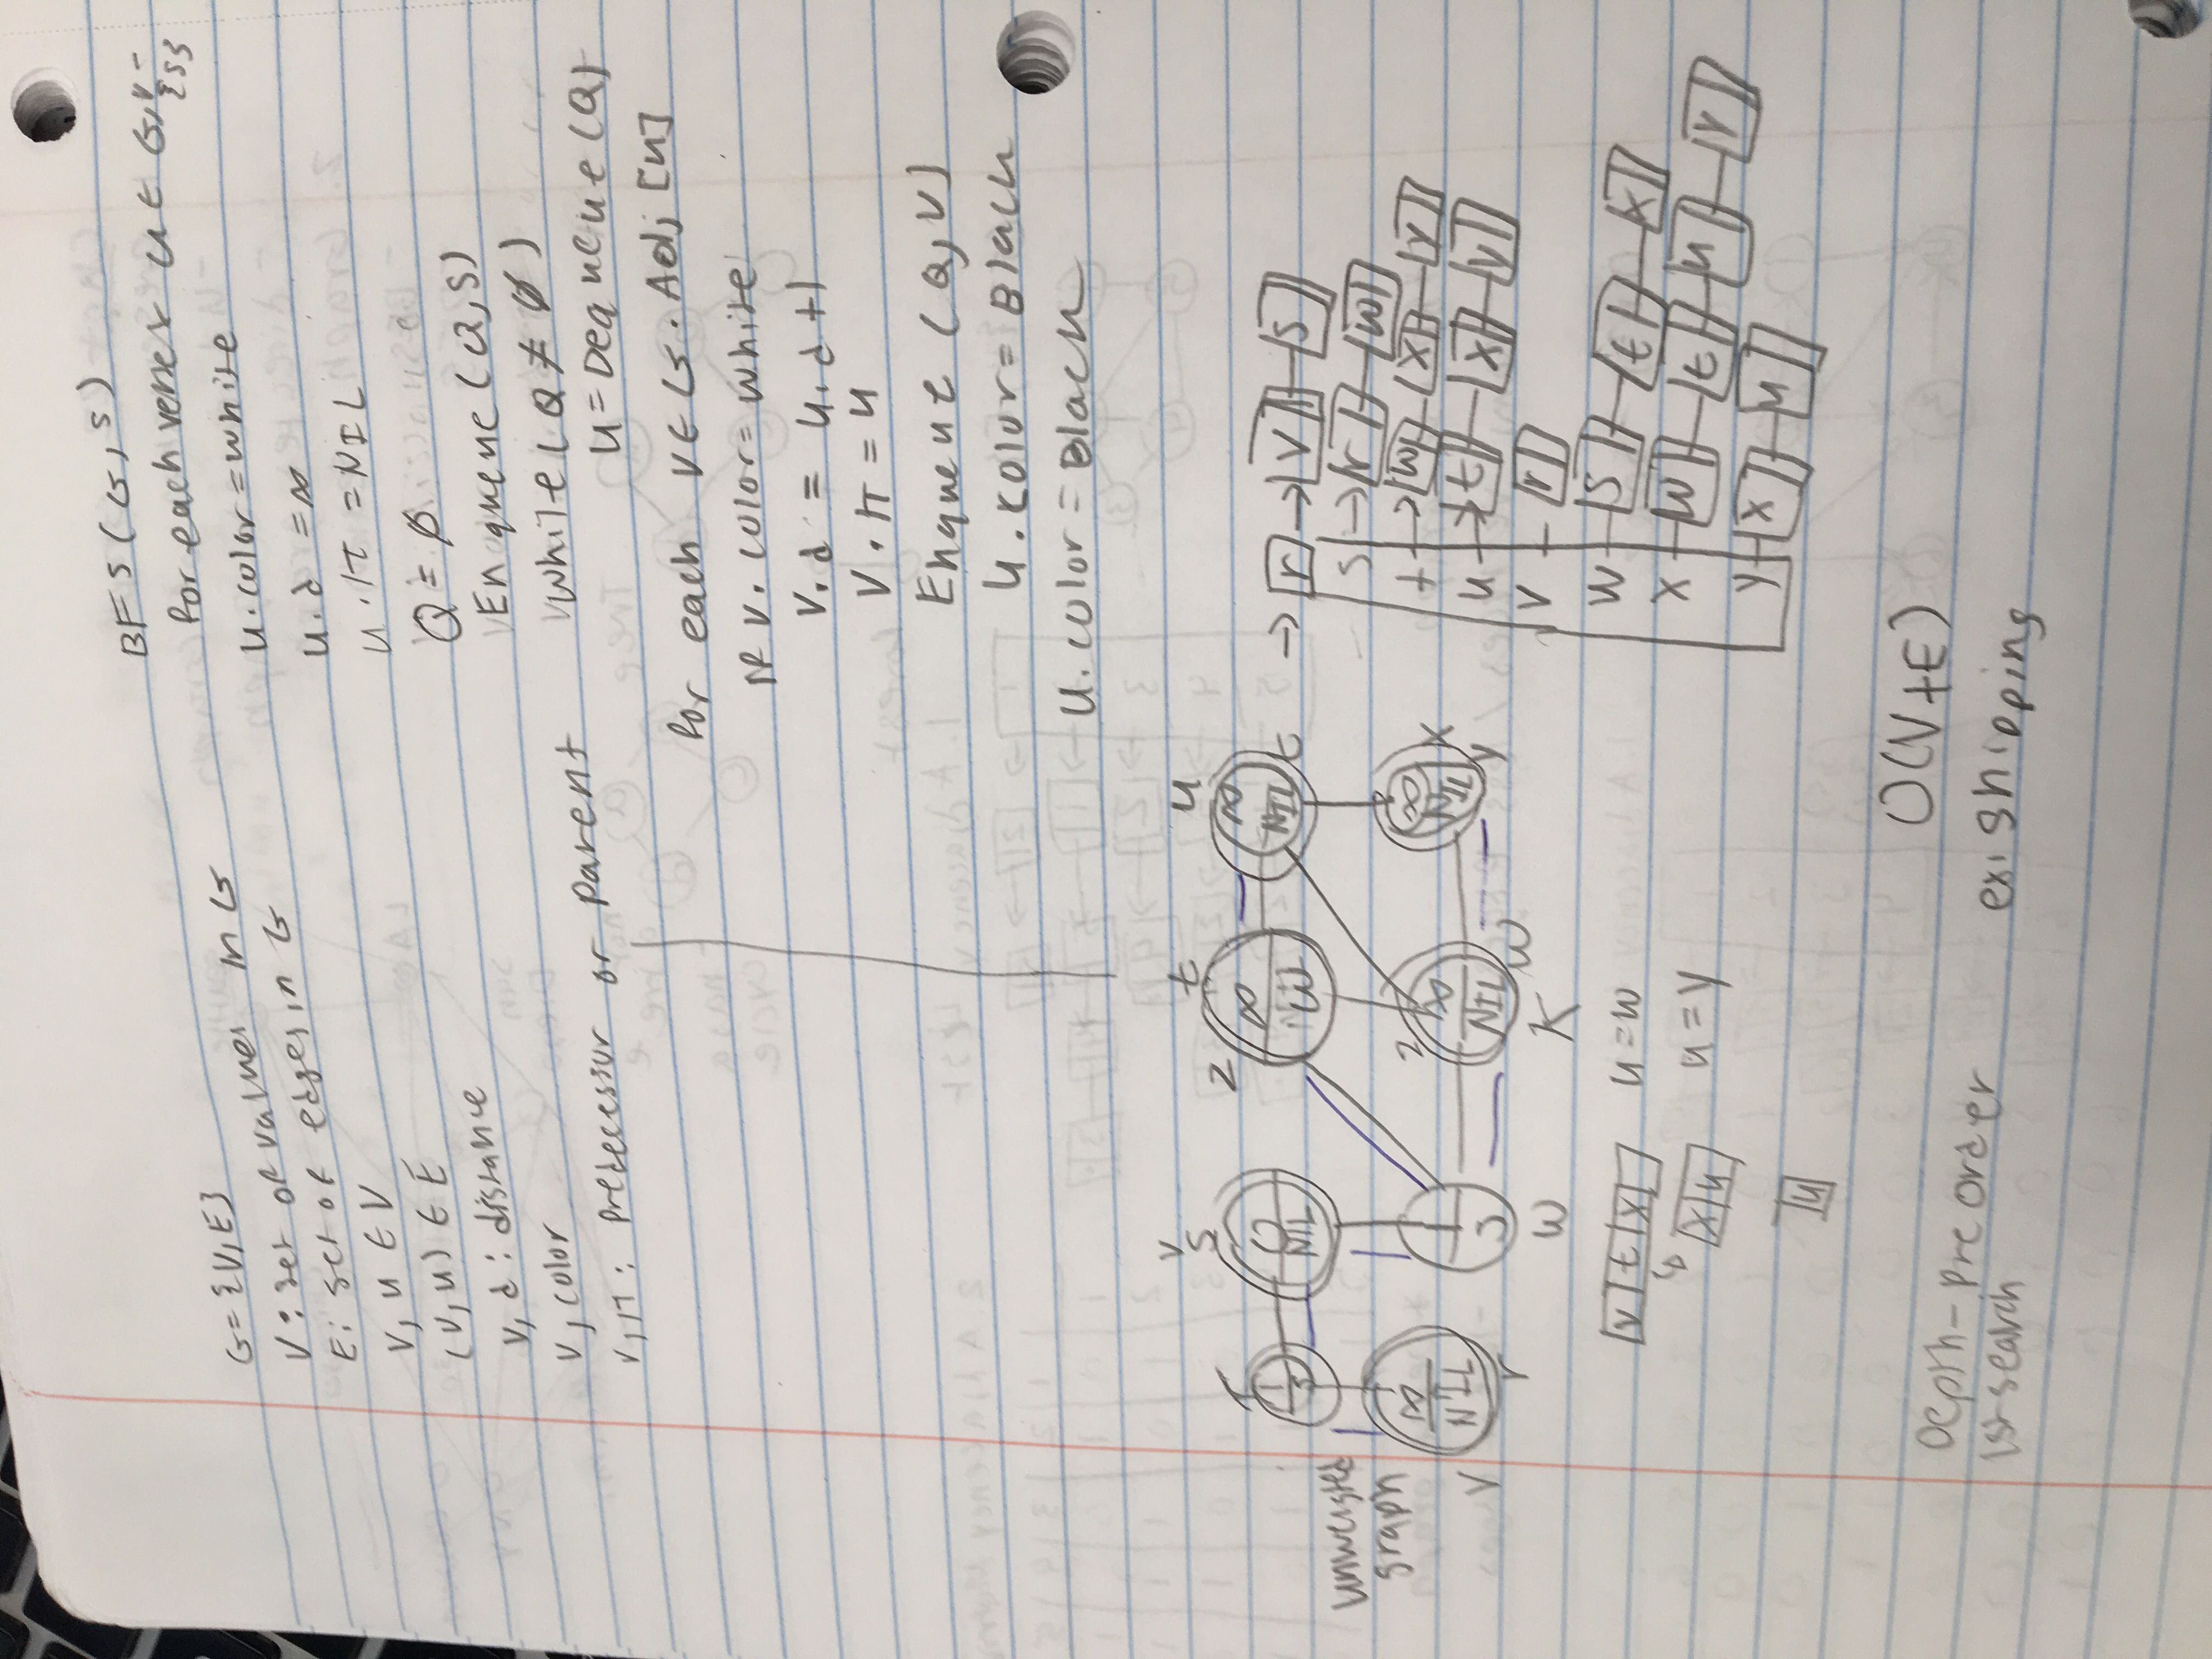 G={V,E}
V: set of values in G
E: set of edges in G
V, u ∈ V
(V, u) ∈ E
V, d: distance
V, color
V, π: Predecessor or parent
BFS(G, S)
for each vertex u ∈ G,V-{S}
u.color=white
u.d =∞
u.π =NIL
Q = ∅
Enqueue (Q, S)
while(Q ≠ ∅)
u=Dequeue(Q)
for each V ∈ G. Adj [u]
if v. color= white
V.d = u.d+1
V.π = u
Enqueue (Q, V)
u. color= Black
u. color = Black
r
v
s
t
u
1
s
0
NIL
2
∞
w
∞
NIL
t
unweighted
graph
∞
NIL
V
r
s
w
2
∞
NIL
w
K
∞
NIL
x
y
→ r → V s
s → r w
t → w x y
u → t x y
V r
w s t x
x w t u y
y x u
v t x u=w
x u u=y
u
O(V+E)
Depth- Pre order
1st search
ex: shipping